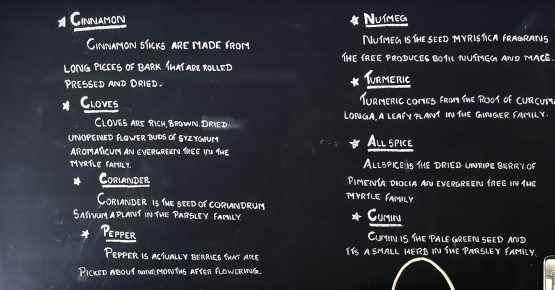 CINNAMON
CINNAMON STICKS ARE MADE FROM
LONG PIECES OF BARK THAT ARE ROLLED
PRESSED AND DRIED.
CLOVES
CLOVES ARE RICH, BROWN, DRIED
UNOPENED FLOWER BUDS OF SYZYGIUM
AROMATICUM AN EVERGREEN TREE IN THE
MYRTLE FAMILY.
CORIANDER
CORIANDER IS THE SEED OF CORIANDRUM
SATIVUM A PLANT IN THE PARSLEY FAMILY
PEPPER
PEPPER IS ACTUALLY BERRIES THAT ARE
PICKED ABOUT NINE MONTHS AFTER FLOWERING.
NUTMEG
NUTMEG IS THE SEED MYRISTICA FRAGRANS
THE TREE PRODUCES BOTH NUTMEG AND MACE.
TURMERIC
TURMERIC COMES FROM THE ROOT OF CURCUMA
LONGA, A LEAFY PLANT IN THE GINGER FAMILY.
ALLSPICE
ALLSPICE IS THE DRIED UNRIPE BERRY OF
PIMENTA DIOCIA AN EVERGREEN TREE IN THE
MYRTLE FAMILY.
CUMIN
CUMIN IS THE PALE GREEN SEED AND
ITS A SMALL HERB IN THE PARSLEY FAMILY.